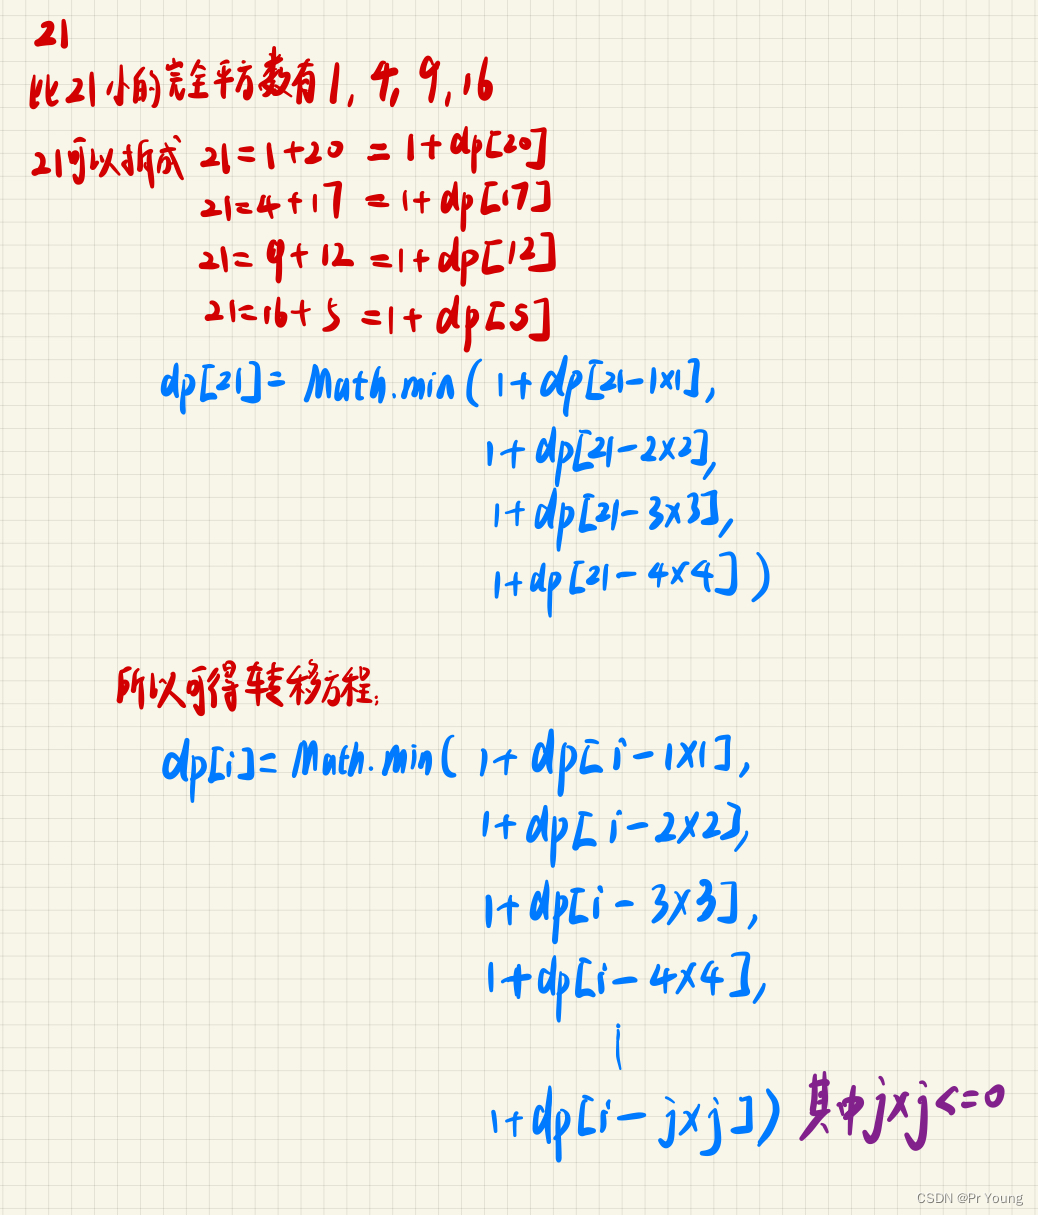 21
比21小的完全平方数有1, 4, 9, 16
21可以拆成 21=1+20 = 1+dp[20]
21=4+17 =1+dp[17]
21=9+12 =1+dp[12]
21=16+5 =1+dp[5]
dp[21]= Math.min( 1+dp[21-1×1],
1+dp[21-2×2],
1+dp[21-3×3],
1+dp[21-4×4])
所以可得转移方程:
dp[i]=Math.min( 1+dp[i-1×1],
1+dp[i-2×2],
1+dp[i-3×3],
1+dp[i-4×4],
1+dp[i-j×j]) 其中j×j<=0
CSDN @Pr Young